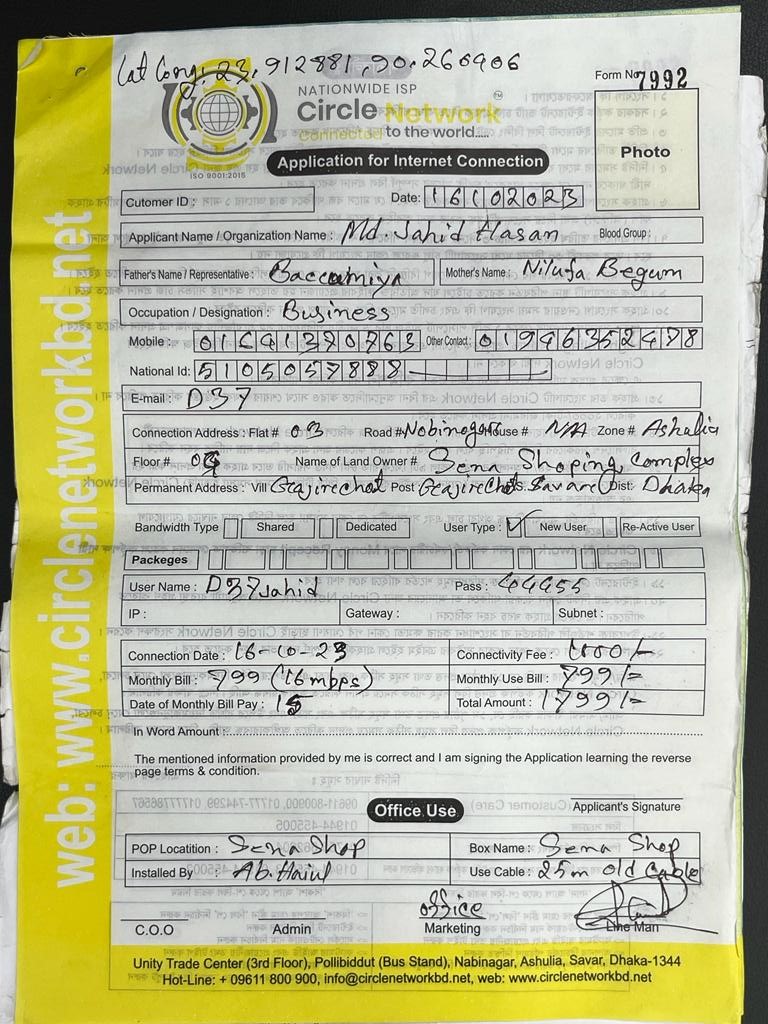 Lat Long: 23.912881, 90.260406
Form No 7992
NATIONWIDE ISP
Circle Network™
Connected to the world.....
ISO 9001:2015
Photo
Application for Internet Connection
Cutomer ID :
Date: 16102023
Applicant Name / Organization Name : Md. Jahid Hasan Blood Group :
Father's Name / Representative : Baccumiya Mother's Name : Nilufa Begum
Occupation / Designation : Business
Mobile : Other Contact :
National Id: 5105057888
E-mail : D37
Connection Address : Flat # 03 Road # Nobinogar House # N/A Zone # Ashulia
Floor # Name of Land Owner # Sena Shoping Complex
Permanent Address : Vill Post P.S. Savar Dist: Dhaka
Bandwidth Type Shared Dedicated User Type : ✓ New User Re-Active User
Packeges
User Name : D37jahid Pass :
IP : Gateway : Subnet :
Connection Date : 16-10-23 Connectivity Fee : 1000/-
Monthly Bill : 799 (16 mbps) Monthly Use Bill : 799/=
Date of Monthly Bill Pay : 15 Total Amount : 1799/=
In Word Amount
The mentioned information provided by me is correct and I am signing the Application learning the reverse
page terms & condition.
Applicant's Signature
Office Use
POP Locatition : Sena Shop Box Name : Sena Shop
Installed By : Use Cable : 25m old cable
office
C.O.O Admin Marketing Line Man
Unity Trade Center (3rd Floor), Pollibiddut (Bus Stand), Nabinagar, Ashulia, Savar, Dhaka-1344
Hot-Line: + 09611 800 900, info@circlenetworkbd.net, web: www.circlenetworkbd.net
web: www.circlenetworkbd.net